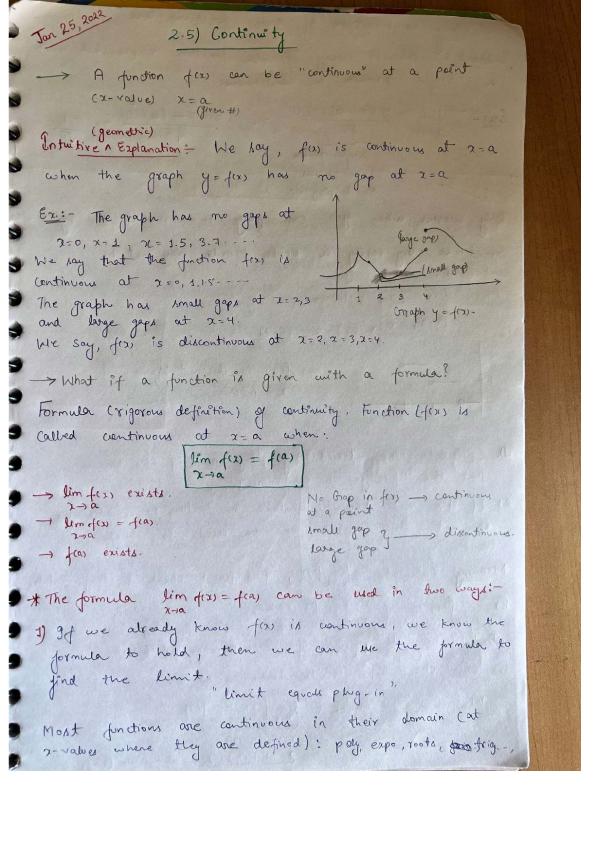 Jan 25, 2022
2.5) Continuity
→ A function f(x) can be "continuous" at a point
(x-value) x = a
(given #)
(geometric)
Intuitive ^ Explanation:- We say, f(x) is continuous at x=a
when the graph y = f(x) has no gap at x=a
Ex:- The graph has no gaps at
x=0, x=1, x=1.5, 3.7. ...
We say that the function f(x) is
continuous at x=0, 1, 1.5 ....
The graph has small gaps at x=2,3
and large gaps at x=4.
We say, f(x) is discontinuous at x=2, x=3, x=4
(large gap)
(small gap)
1 2 3 4
Graph y = f(x).
→ What if a function is given with a formula?
Formula (rigorous definition) of continuity. Function f(x) is
called continuous at x=a when:
lim f(x) = f(a)
x→a
→ lim f(x) exists.
x→a
→ lim f(x) = f(a)
x→a
→ f(a) exists.
No Gap in f(x) → continuous
at a point
small gap
large gap } → discontinuous.
* The formula lim f(x) = f(a) can be used in two ways:-
x→a
1) If we already know f(x) is continuous, we know the
formula to hold, then we can use the formula to
find the limit.
"limit equals plug-in"
Most functions are continuous in their domain (at
x-values where they are defined): poly, expo, roots, trig..,